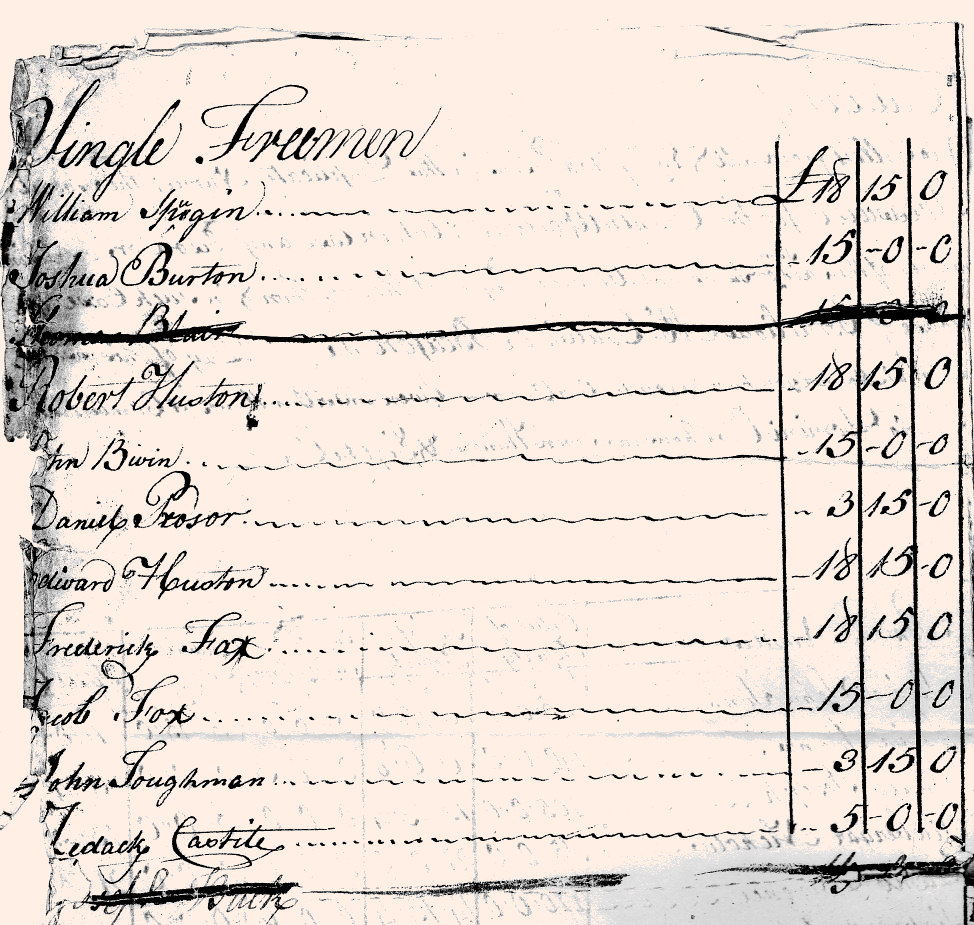 Single Freemen
William Spurgin £18 15 0
Joshua Burton 15-0-0
Blair 15-0-0
Robert Huston 18 15 0
Bivin 15-0-0
Daniel Prosor 3 15-0
Edward Huston 18 15-0
Frederick Fax 18 15 0
Jacob Fox 15-0-0
John Loughman 3 15 0
Zedack Castile 5-0-0